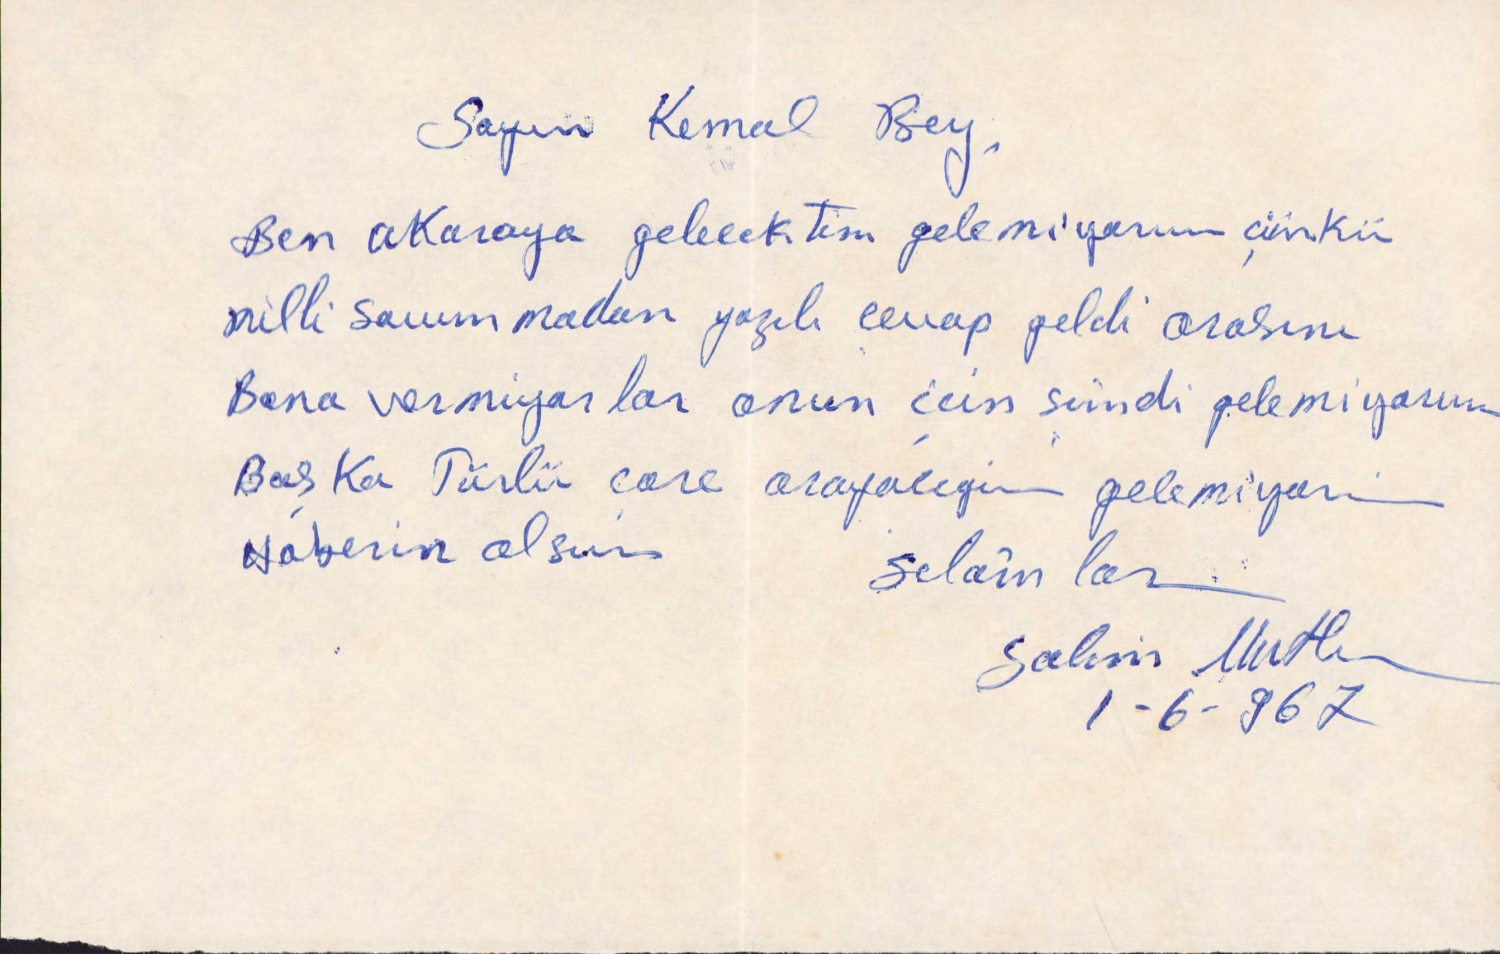 Sayın Kemal Bey,
Ben akaraya gelecektim gelemiyorum çünkü
milli savunmadan yazılı cevap geldi orasını
Bana vermiyorlar onun için şimdi gelemiyorum
Başka Türlü çare arayacağım gelemiyorum
Haberin olsun
Selâmlar
Salim Mutlu
1-6-967